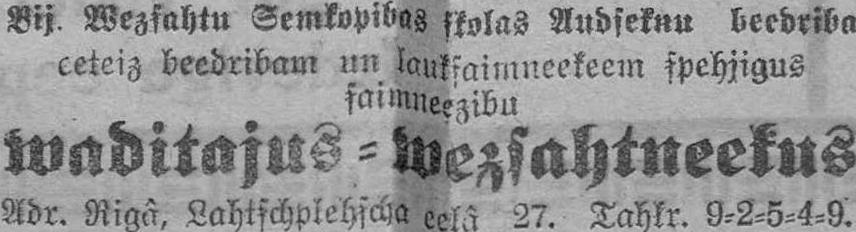 Bij. Wezsahtu Semkopibas skolas Audseknu beedriba
eeteiz beedribam un lauksaimneekeem spehjigus
saimneezibu
waditajus = wezsahtneekus
Adr. Rigâ, Lahtschplehscha eelâ 27. Tahlr. 9=2=5=4=9.